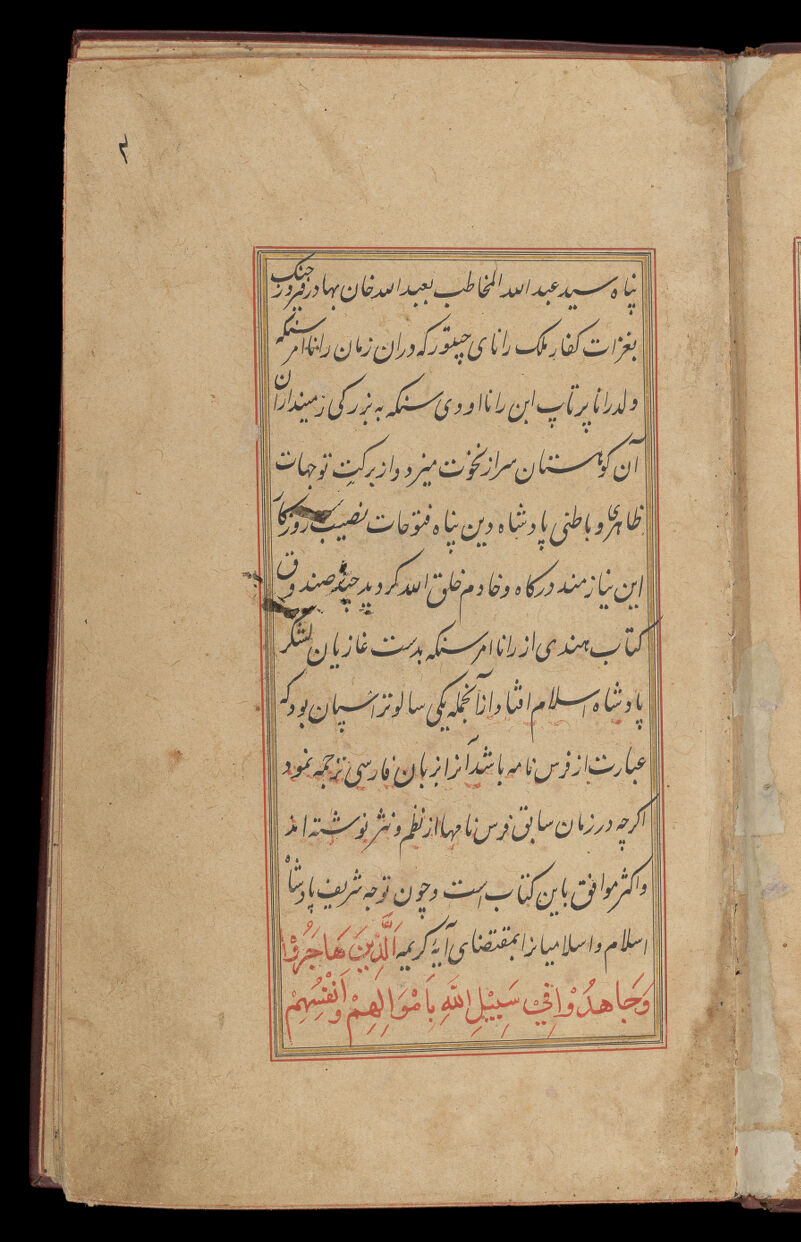 ۳
پناه سید عبد الله المخاطب بعبد الله خان بهادر فیروز جنک
بغزات کفار ملک رانای چیتور که دران زمان رانا امر سنکه
ولد رانا پرتاپ ابن رانا اودی سنکه به بزرکی زمینداران
آن کوهستان سر از نخوت میزد و از برکت توجهات
ظاهری و باطنی پادشاه دین پناه فتوحات نصیب روزکار
این نیازمند درکاه و خادم خلق الله کردید چند صندوق
کتاب هندی از رانا امر سنکه بدست غازیان لشکر
پادشاه اسلام افتاد ازآنجمله یکی سالوتر اسپان بود که
عبارت از فرس نامه باشد آنرا بزبان فارسی ترجمه نمود
اکرچه در زمان سابق فرس نامها از نظم و نثر نوشته اند
و اکثر موافق باین کتاب است و چون توجه شریف پادشاه
اسلام و اسلامیانرا بمقتضای آیۀ کریمه اَلَّذِینَ هَاجَرُوْا
وَجَاهَدُوْا فِیْ سَبِیْلِ اللّٰهِ بِاَمْوَالِهِمْ وَاَنْفُسِهِمْ